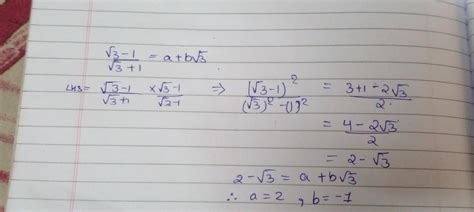 √3-1 / √3+1 = a+b√3
LHS= √3-1 / √3+1 × √3-1 / √3-1 ⇒ (√3-1)² / (√3)²-(1)² = 3+1-2√3 / 2
= 4-2√3 / 2
= 2-√3
2-√3 = a+b√3
∴ a=2, b=-1